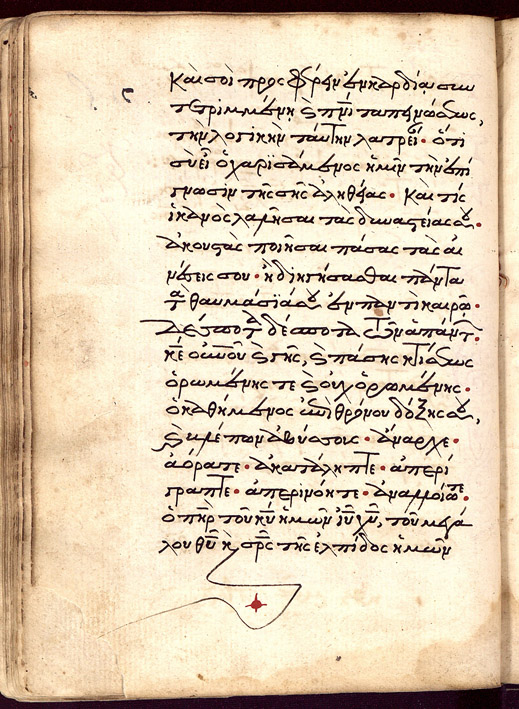 Καὶ σοὶ προσφέρειν ἐν καρδίᾳ συν
τετριμμένῃ ϗ πνι ταπεινώσεως,
τὴν λογικὴν ταύτην λατρεί· ὅτι
σὺ εἶ ὁ χαρισάμενος ἡμῖν τὴν ἐπί
γνωσιν τῆς σῆς ἀληθείας· Καὶ τίς
ἱκανὸς λαλῆσαι τὰς δυναστείας σου·
ἀκουστὰς ποιῆσαι πάσας τὰς αἰ
νέσεις σου· ἢ διηγήσασθαι πάντα
τὰ θαυμάσιά σου ἐν παντὶ καιρῷ·
Δέσποτα δέσποτα τῶν ἁπάντ·
κε οὐνοῦ ϗ γῆς, ϗ πάσης κτίσεως
ὁρωμένης τε ϗ οὐχ ὁρωμένης·
ὁ καθήμενος ἐπὶ θρόνου δόξης σου,
ϗ βλέπων ἀβύσσους· ἄναρχε·
ἀόρατε· ἀκατάληπτε· ἀπερί
γραπτε· ἀπερινόητε· ἀναλλοίωτε·
ὁ πηρ τοῦ κυ ἡμῶν ιυ χυ, τοῦ μεγά
λου θυ ϗ σρς τῆς ἐλπίδος ἡμῶν